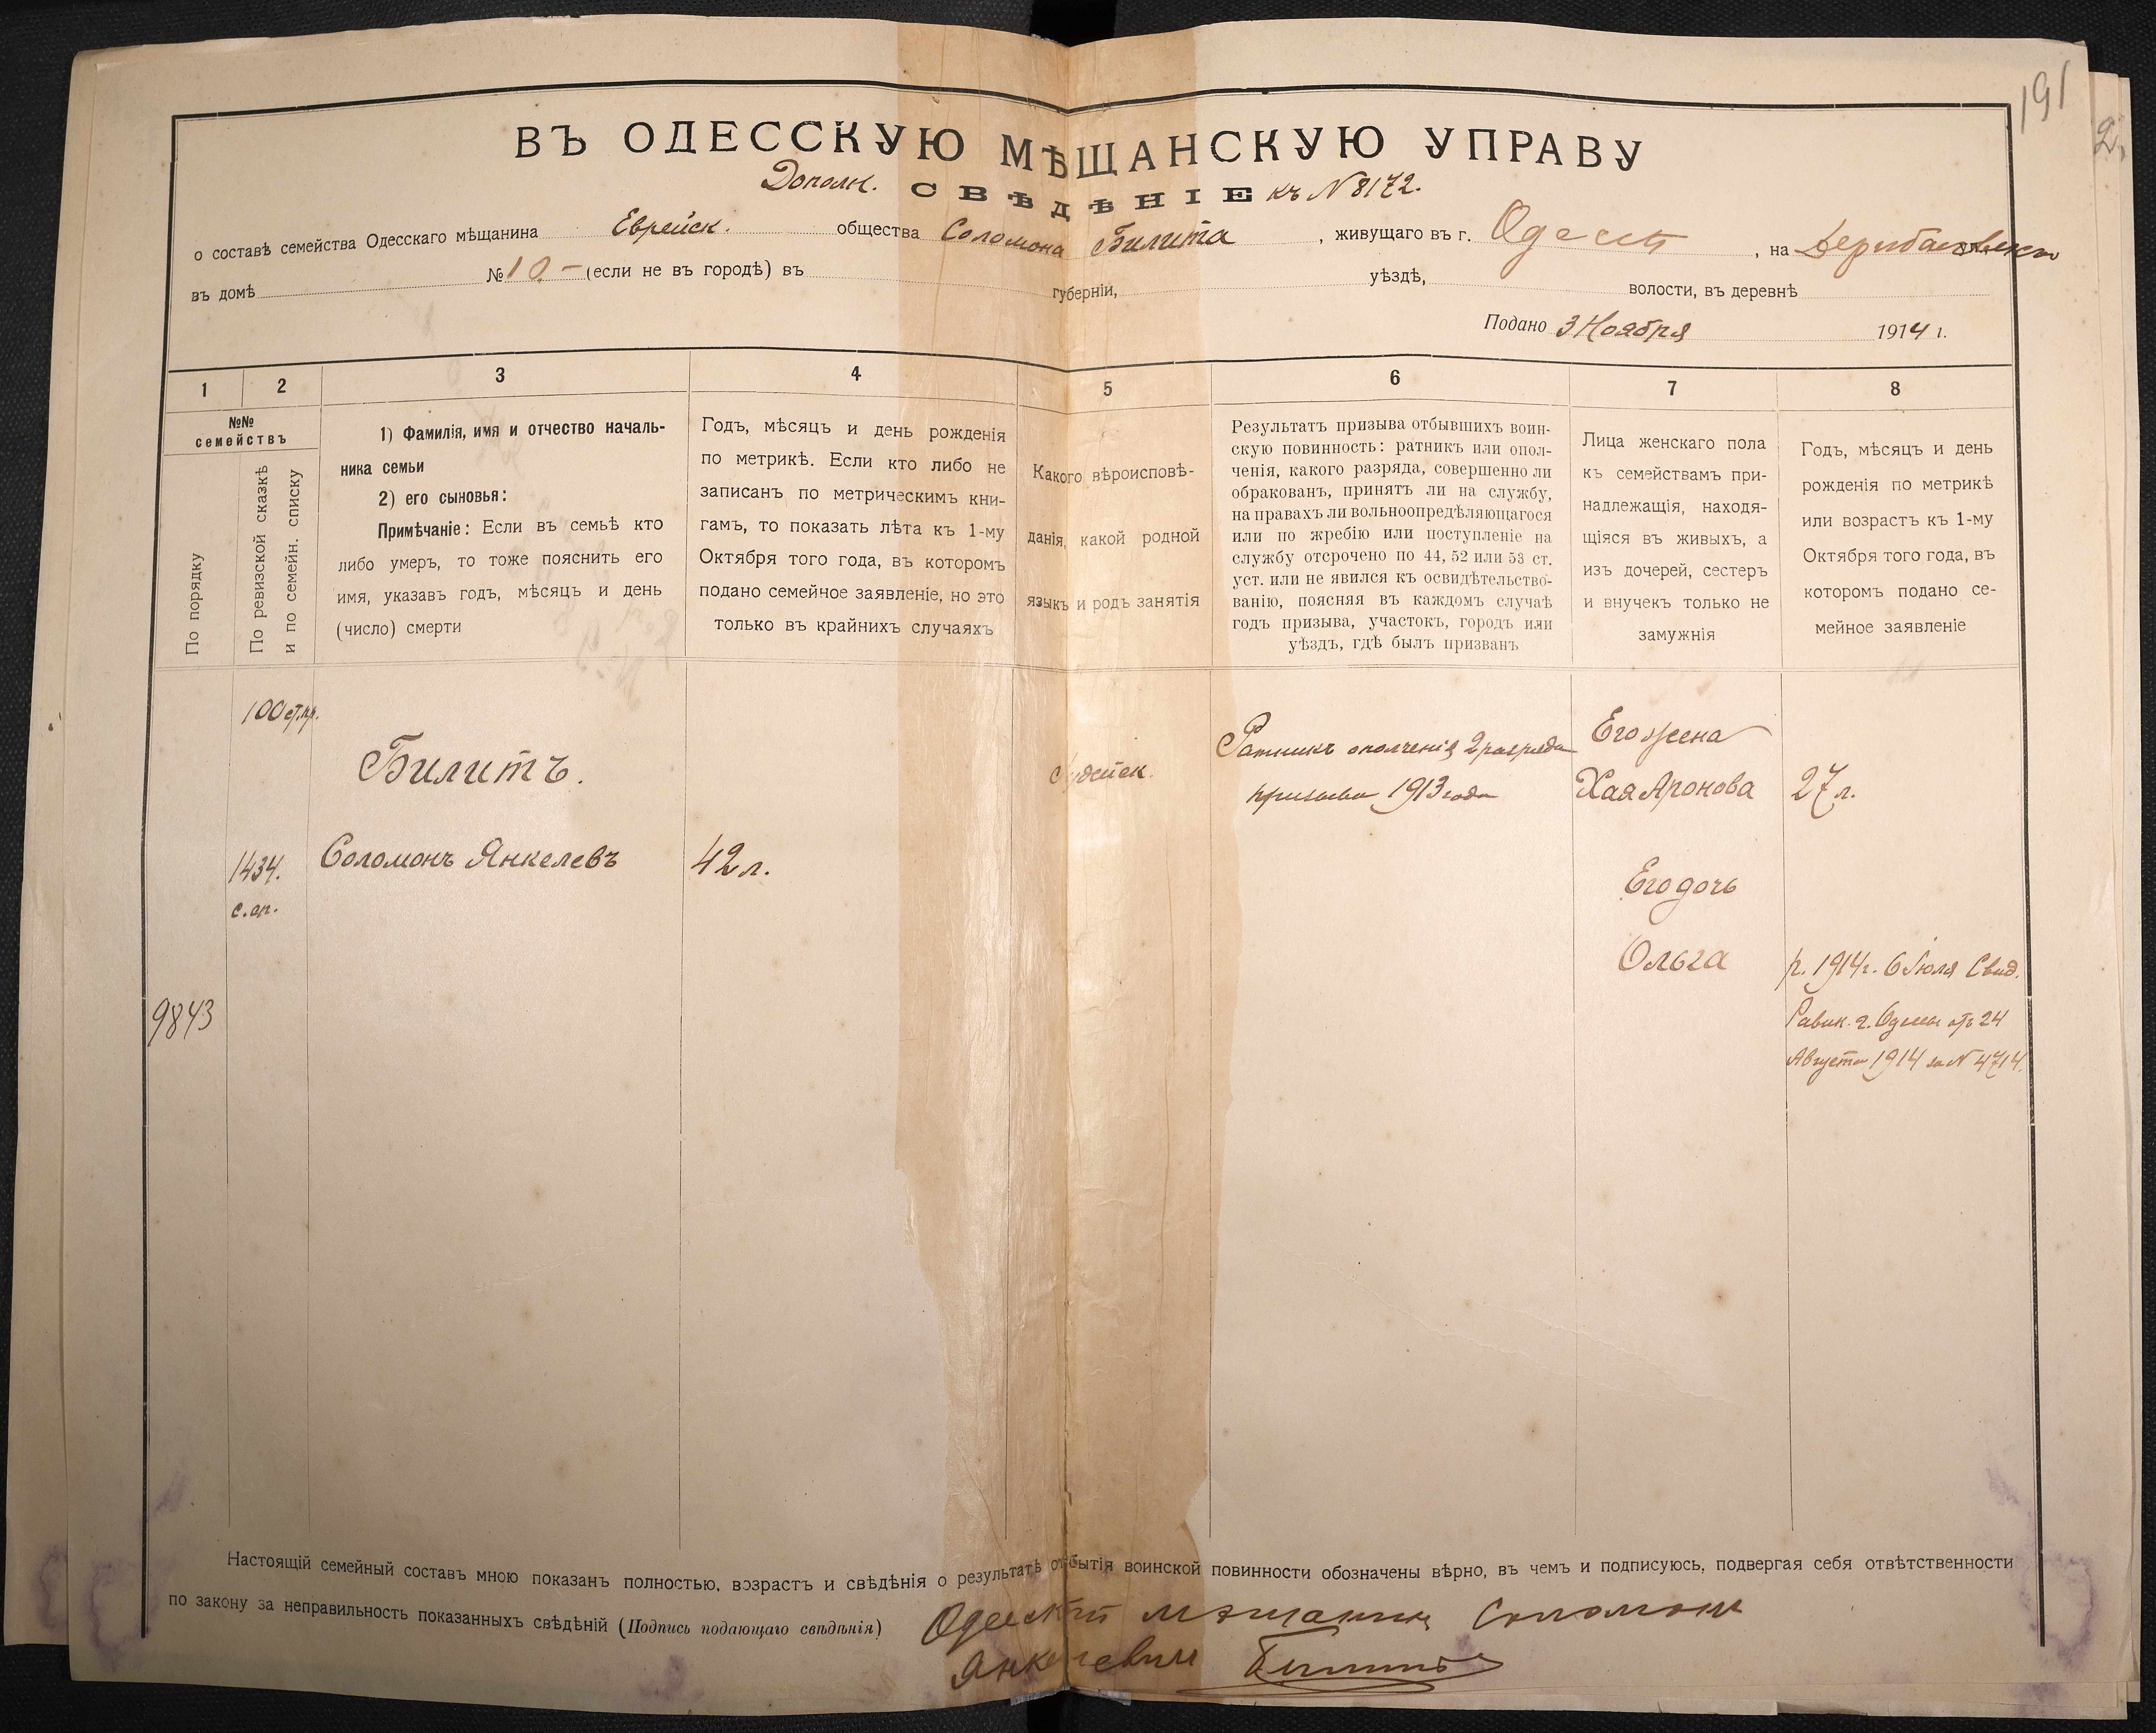 191
ВЪ ОДЕССКУЮ МѢЩАНСКУЮ УПРАВУ
Дополн. СВѢДѢНІЕ къ N 8172.
о составѣ семейства Одесскаго мѣщанина Еврейск. общества Соломона Билита, живущаго въ г. Одессѣ, на
въ домѣ № 10 (если не въ городѣ) въ губерніи, уѣздѣ, волости, въ деревнѣ
Подано 3 Ноября 1914 г.
1 2 3 4 5 6 7 8
№№
семействъ
По порядку
По ревизской сказкѣ
и по семейн. списку
1) Фамилія, имя и отчество началь-
ника семьи
2) его сыновья:
Примѣчаніе: Если въ семьѣ кто
либо умеръ, то тоже пояснить его
имя, указавъ годъ, мѣсяцъ и день
(число) смерти
Годъ, мѣсяцъ и день рожденія
по метрикѣ. Если кто либо не
записанъ по метрическимъ кни-
гамъ, то показать лѣта къ 1-му
Октября того года, въ которомъ
подано семейное заявленіе, но это
только въ крайнихъ случаяхъ
Какого вѣроисповѣ-
данія, какой родной
языкъ и родъ занятія
Результатъ призыва отбывшихъ воин-
скую повинность: ратникъ или опол-
ченія, какого разряда, совершенно ли
обракованъ, принятъ ли на службу,
на правахъ ли вольноопредѣляющагося
или по жребію или поступленіе на
службу отсрочено по 44, 52 или 53 ст.
уст. или не явился къ освидѣтельство-
ванію, поясняя въ каждомъ случаѣ
годъ призыва, участокъ, городъ или
уѣздъ, гдѣ былъ призванъ
Лица женскаго пола
къ семействамъ при-
надлежащія, находя-
щіяся въ живыхъ, а
изъ дочерей, сестеръ
и внучекъ только не
замужнія
Годъ, мѣсяцъ и день
рожденія по метрикѣ
или возрастъ къ 1-му
Октября того года, въ
которомъ подано се-
мейное заявленіе
100 ст.пр.
Билитъ.
Іудейск.
Ратникъ ополченія 2 разряда
призыва 1913 года
Его жена
Хая Аронова 27 л.
1434.
Соломонъ Янкелевъ 42 л.
Его дочь
Ольга
р. 1914 г. 6 Іюля Свид.
Равин. г. Одессы отъ 24
Августа 1914 за N 4714.
9843
Настоящій семейный составъ мною показанъ полностью, возрастъ и свѣдѣнія о результатѣ отбытія воинской повинности обозначены вѣрно, въ чемъ и подписуюсь, подвергая себя отвѣтственности
по закону за неправильность показанныхъ свѣдѣній (Подпись подающаго свѣдѣнія) Одесскій мѣщанинъ Соломонъ
Янкелевич Билитъ